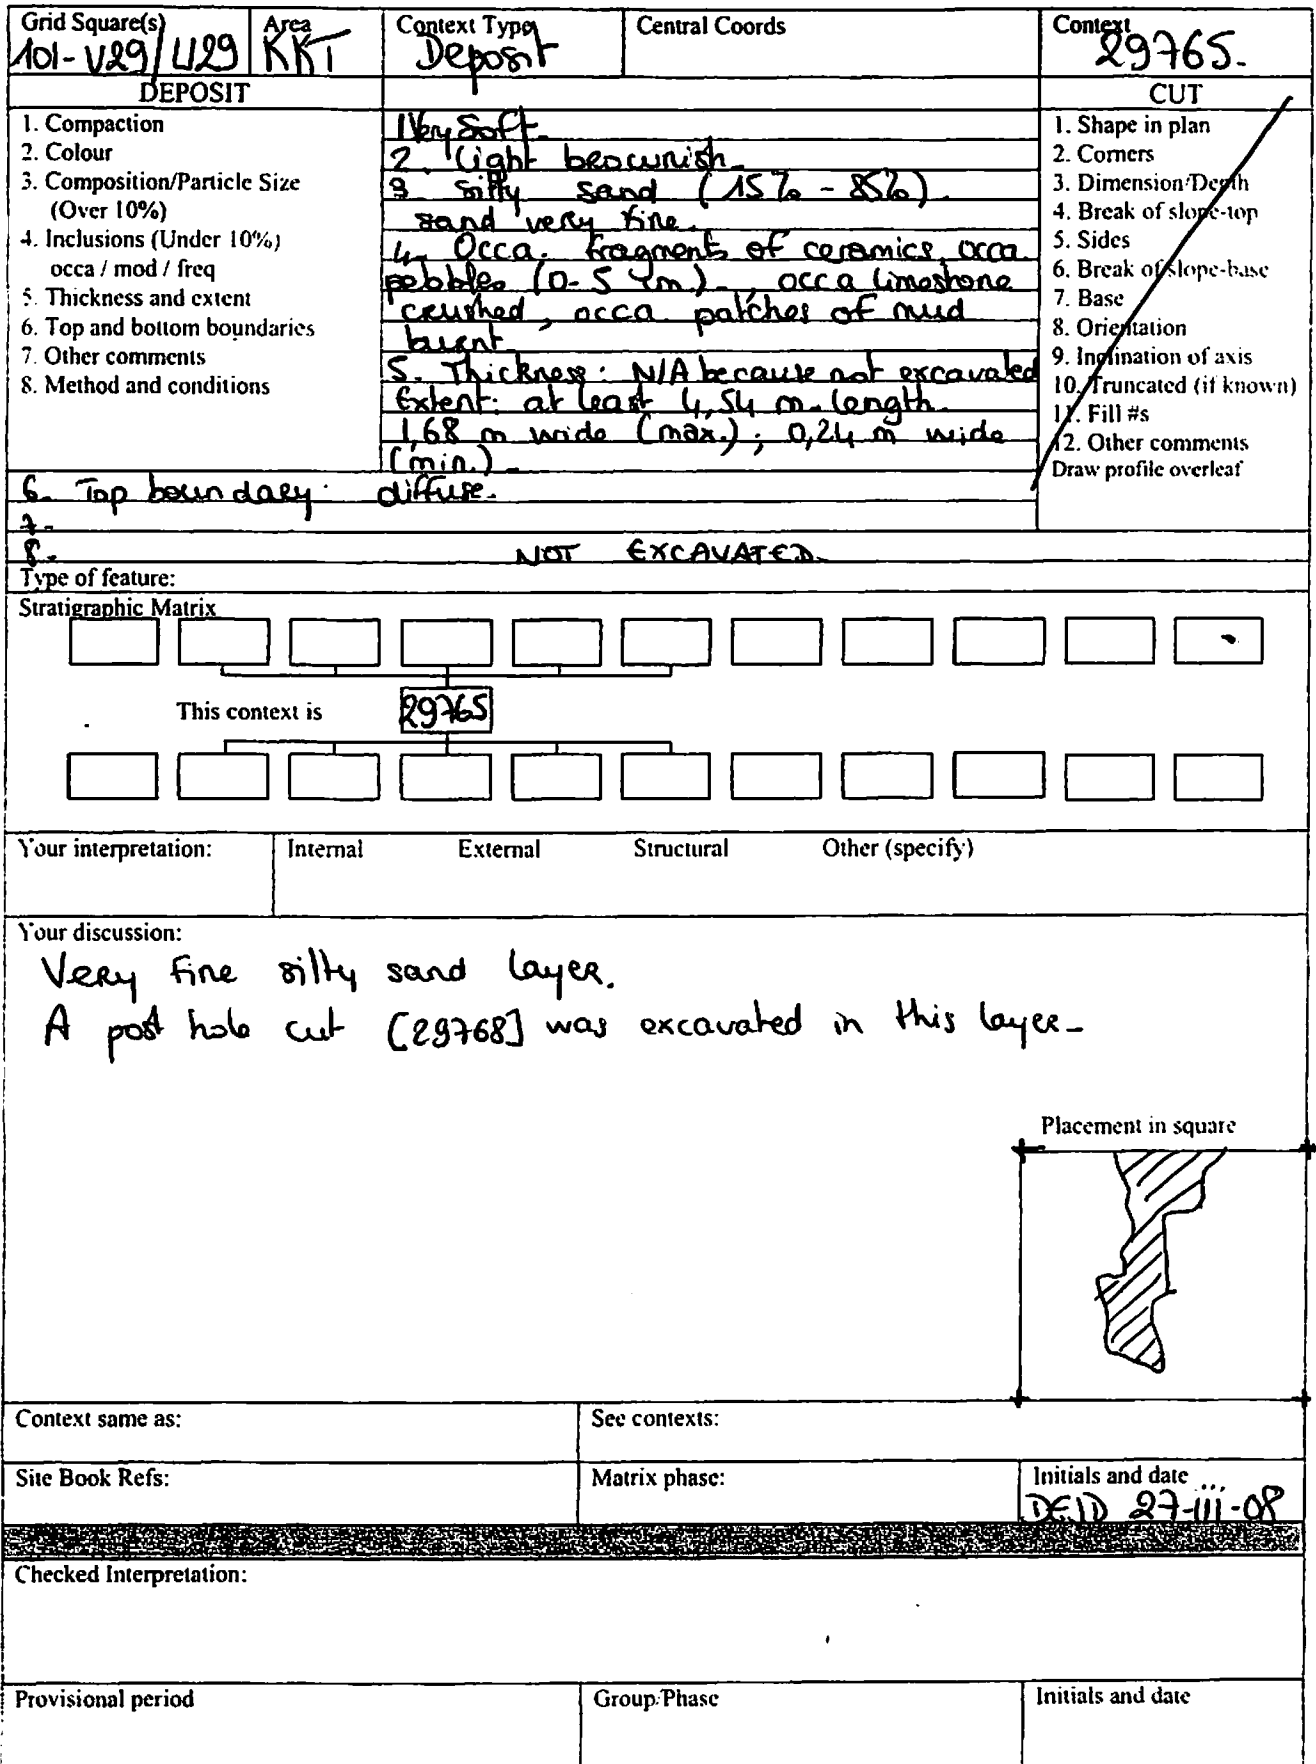 Grid Square(s) Area Context Type Central Coords Context
101-V29/U29 KKT Deposit 29765.
DEPOSIT CUT
1. Compaction
2. Colour
3. Composition/Particle Size
(Over 10%)
4. Inclusions (Under 10%)
occa / mod / freq
5. Thickness and extent
6. Top and bottom boundaries
7. Other comments
8. Method and conditions
1 Very Soft.
2. Light brownish.
3. silty sand (15% - 85%).
sand very fine.
4. Occa. fragments of ceramics, occa.
pebbles (0-5 cm)., occa limestone
crushed, occa. patches of mud
burnt.
5. Thickness: N/A because not excavated
Extent: at least 4,54 m. length.
1,68 m wide (max.); 0,24 m wide
(min.).
1. Shape in plan
2. Corners
3. Dimension/Depth
4. Break of slope-top
5. Sides
6. Break of slope-base
7. Base
8. Orientation
9. Inclination of axis
10. Truncated (if known)
11. Fill #s
12. Other comments
Draw profile overleaf
6. Top boundary: diffuse.
7.
8. NOT EXCAVATED.
Type of feature:
Stratigraphic Matrix
This context is 29765
Your interpretation: Internal External Structural Other (specify)
Your discussion:
Very fine silty sand layer.
A post hole cut [29768] was excavated in this layer.
Placement in square
Context same as: See contexts:
Site Book Refs: Matrix phase: Initials and date
27-iii-08
Checked Interpretation:
Provisional period Group/Phase Initials and date